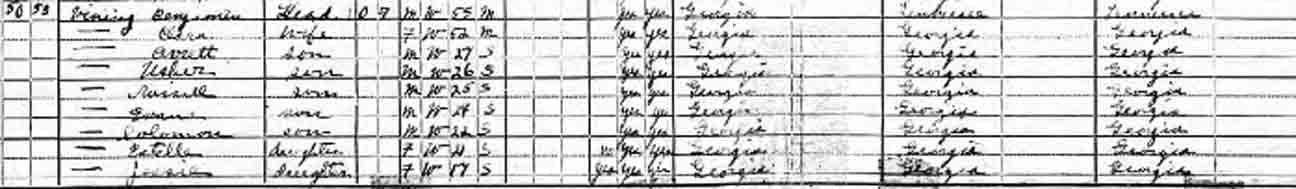 50 53 Vining Benjamin Head O F M W 55 M Yes Yes Georgia Tennessee Tennessee
— Clara Wife F W 52 M Yes Yes Georgia Georgia Georgia
— son M W 27 S Yes Yes Georgia Georgia Georgia
— Usher son M W 26 S Yes Yes Georgia Georgia Georgia
— Russell son M W 25 S Yes Yes Georgia Georgia Georgia
— son M W S Yes Yes Georgia Georgia Georgia
— Solomon son M W 22 S Yes Yes Georgia Georgia Georgia
— Estelle daughter F W 21 S no Yes Yes Georgia Georgia Georgia
— Jessie daughter F W S Yes Yes Yes Georgia Georgia Georgia